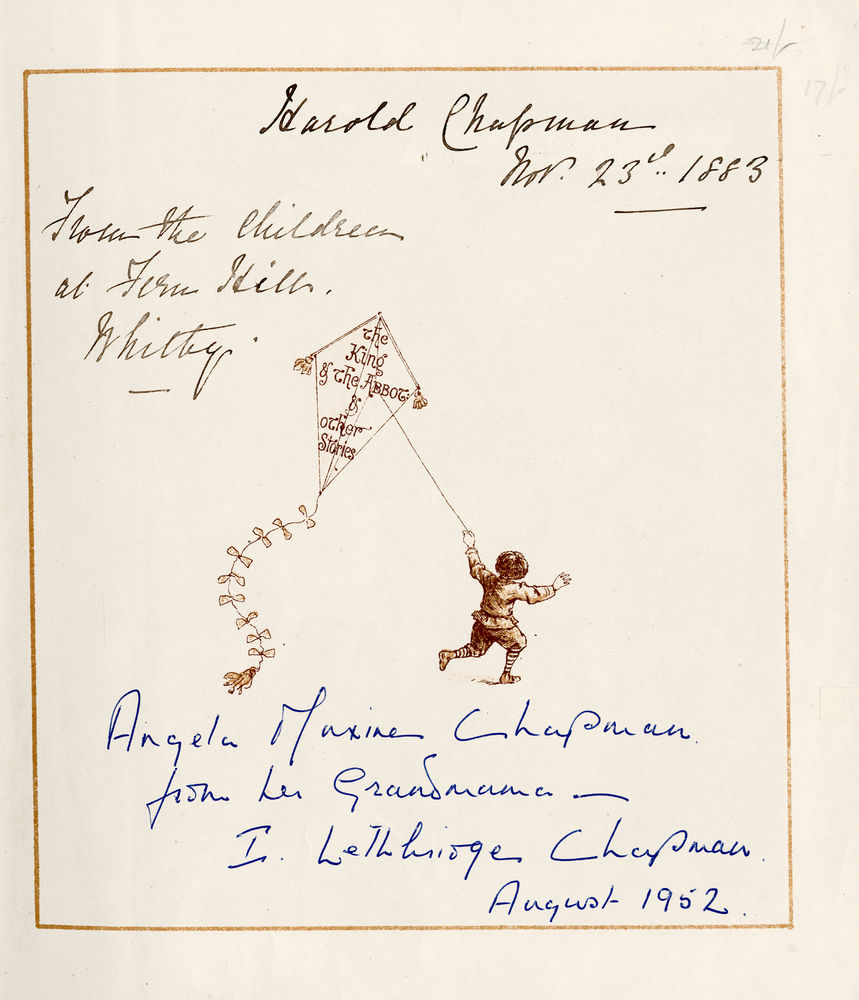 21/-
17/-
Harold Chapman
Nov. 23rd. 1883
From the Children
at Fern Hill.
Whitby.
The
King
& the Abbot
&
other
Stories
Angela Maxine Chapman.
from her Grandmama —
I. Lethbridge Chapman.
August 1952.